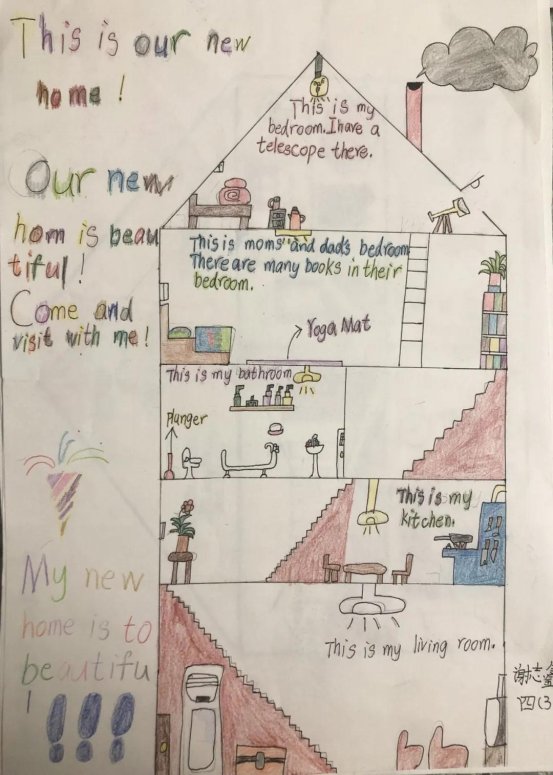 This is our new
home !
Our new
hom is beau
tiful !
Come and
visit with me !
My new
home is to
beautifu
l !!!
This is my
bedroom. I have a
telescope there.
This is moms" and dad's bedroom
There are many books in their
bedroom.
Yoga Mat
This is my bathroom
Plunger
This is my
kitchen.
This is my living room.
谢志
四(3